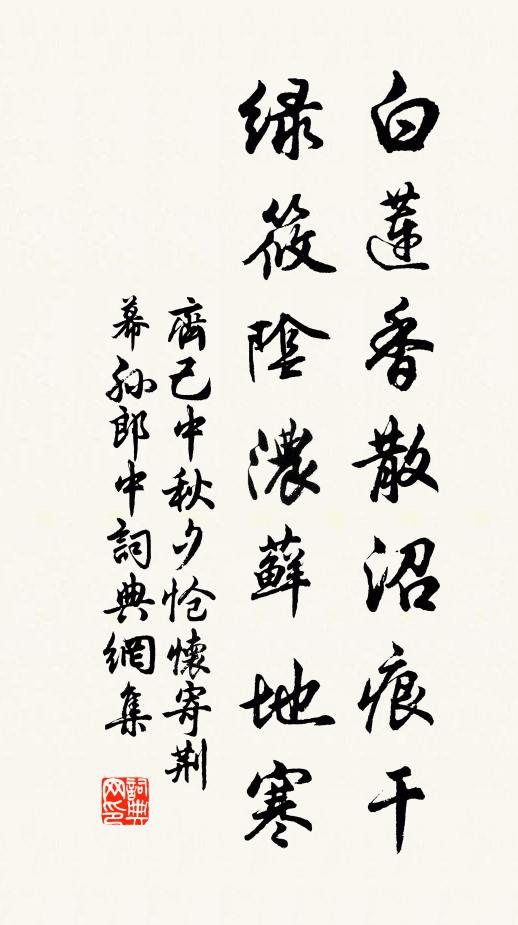 白蓮香散沼痕干
綠筱陰濃蘚地寒
齊己中秋夕愴懷寄荆
幕孫郎中詞典網集
詞典
网印